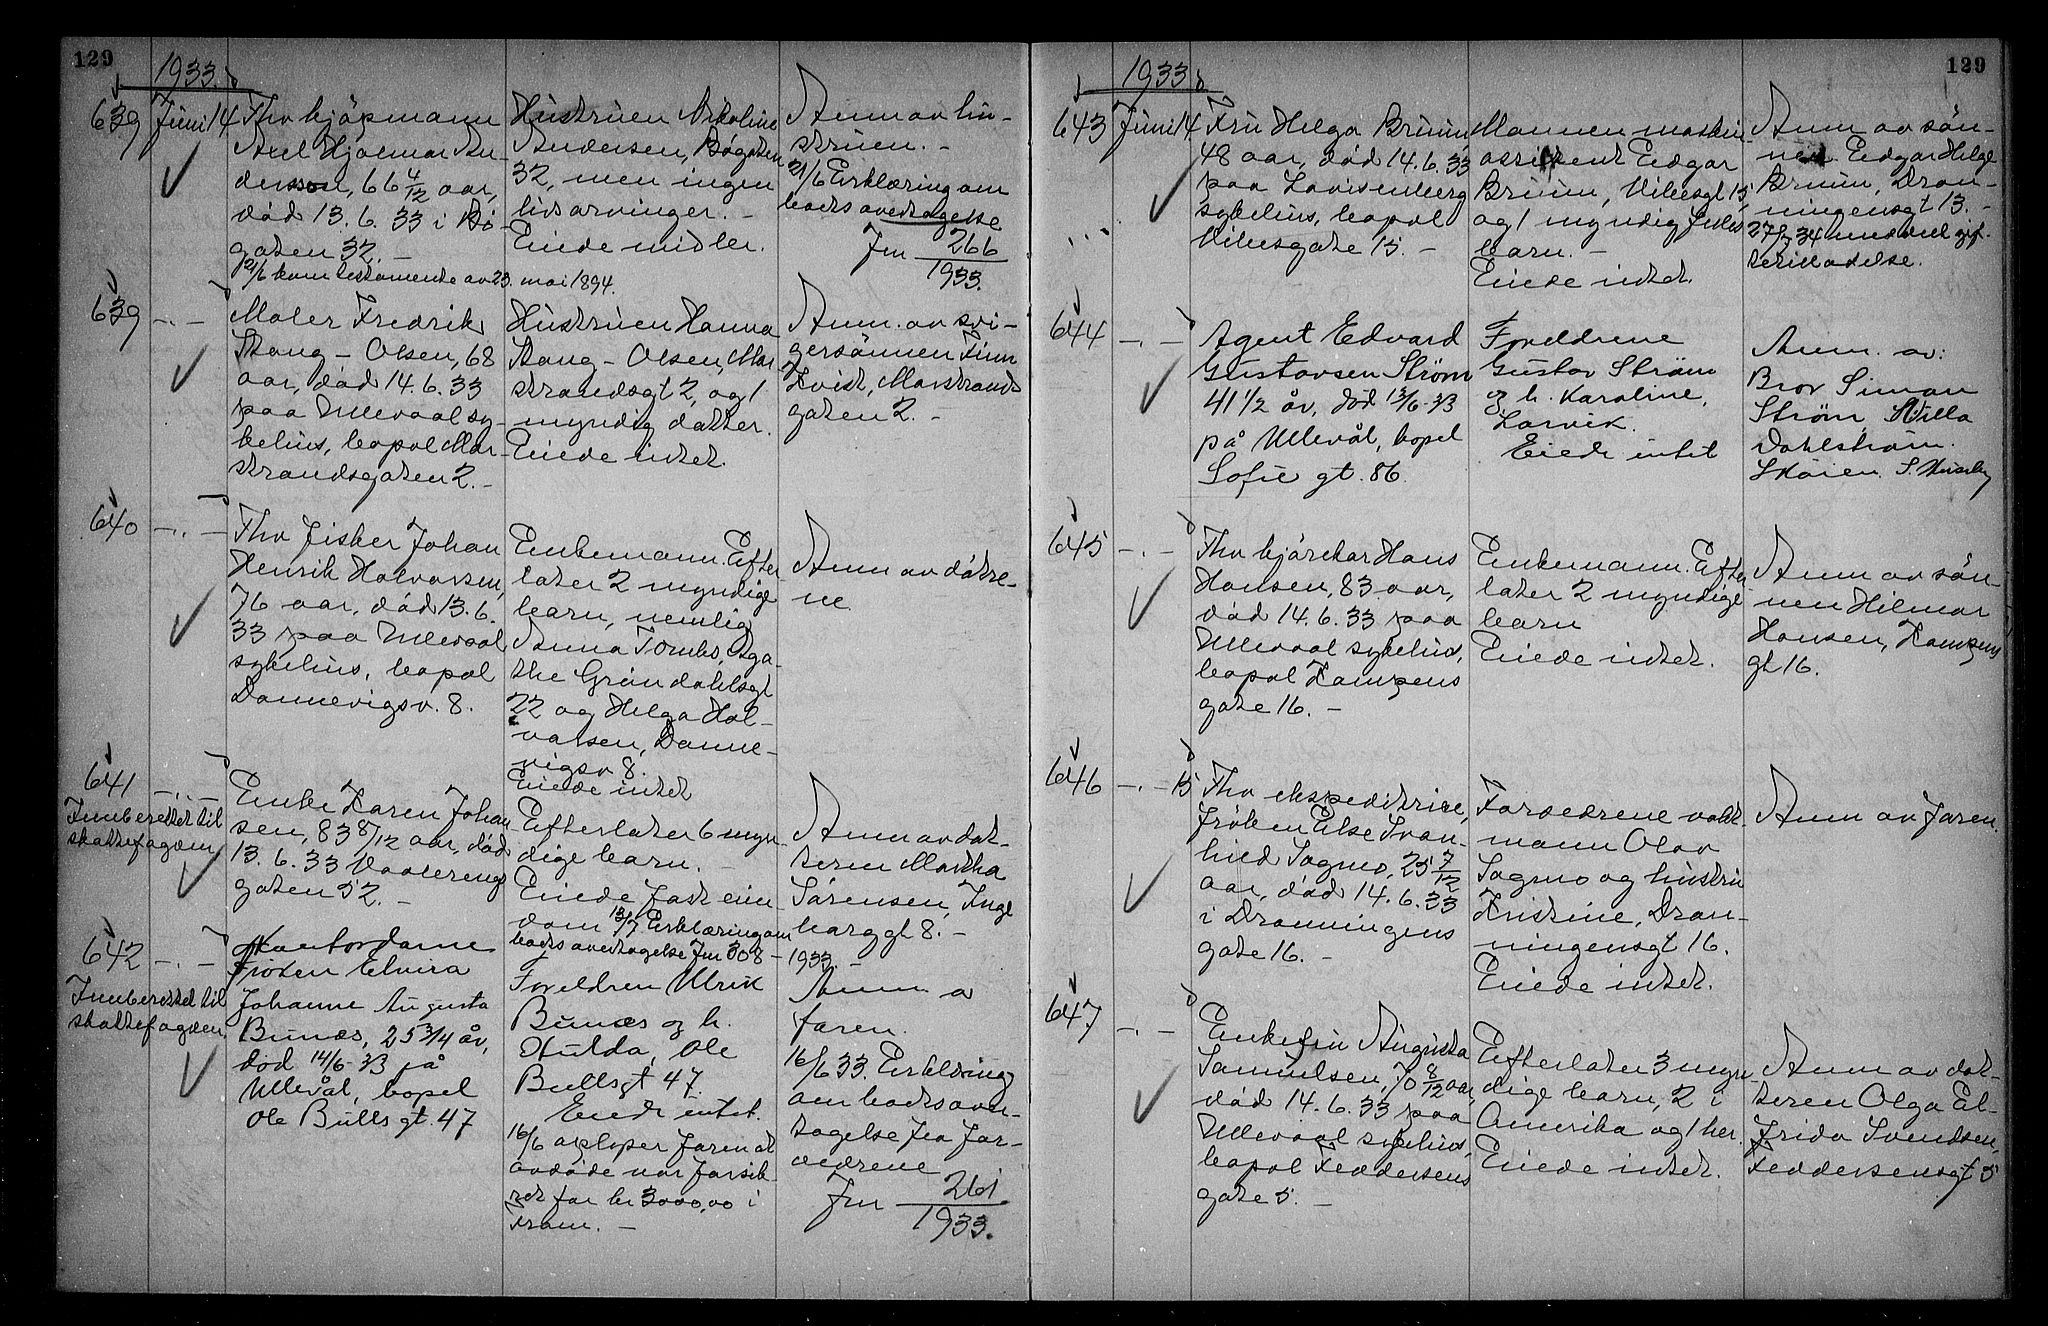 129
1933.
639 Juni 14
Fhv kjöpmann
Axel Hjalmar An-
dersson, 66 4/12 aar,
död 13.6.33 i Bö-
gaten 32. -
12/6 kom testamente av 23. mai 1894.
Hustruen Nikoline
Andersen, Bögaten
32, men ingen
livsarvinger. -
Eiede midler.
Anm av hu-
struen. -
21/6 Erklæring om
boets overtagelse
Jnr 266
1933.
639 -..-
Maler Fredrik
Stang - Olsen, 68
aar, död 14.6.33
paa Ullevaal sy-
kehus, bopæl Mar-
strandsgaten 2. -
Hustruen Hanna
Stang - Olsen, Mar-
strandsgt 2, og 1
myndig datter.
Eiede intet.
Anm. av svi-
gersönnen Finn
Kvist, Marstrands
gaten 2. -
640 -..-
Fhv fisker Johan
Henrik Halvorsen,
76 aar, död 13.6.
33 paa Ullevaal
sykehus, bopæl
Dannevigsv. 8.
Enkemann. Efter-
later 2 myndige
barn, nemlig
Anna Tombs, Aga-
the Gröndahlsgt
22 og Helga Hal-
vorsen, Danne-
vigsv 8.
Eiede intet
Anm av dötre-
ne
641 -..-
Innberettet til
skattefogden
Enke Karen Johan-
sen, 83 8/12 aar, död
13.6.33 Vaalereng-
gaten 52. -
Efterlater 6 myn-
dige barn. -
Eiede fast eien-
dom 13/7 Erklæring om
boets overtagelse Jnr 308 -
1933. -
Anm av dat-
teren Martha
Sörensen, Inge
borggt 8. -
642 -..-
Innberettet til
skattefogden.
Kontordame
Fröken Elvira
Johanne Augusta
Bunæs, 25 3/4 år,
död 14/6-33 på
Ullevål, bopel
Ole Bulls gt. 47
Foreldren Ulrik
Bunæs og h.
Hulda, Ole
Bullsgt 47.
Eiede intet.
16/6 opplyser faren at
avdöde var forsik-
ret for kr 3000,00 i
Fram. -
Anm a
faren.
16/6 33. Erklæring
om boets over-
tagelse fra for-
eldrene
Jnr 261
1933.
129
1933.
643 Juni 14
Fru Helga Bruun,
48 aar, död 14.6.33
paa Lovisenberg
sykehus, bopæl
Vibesgate 15. -
Mannen maskin
assistent Eidgar
Bruun, Vibesgt 15,
og 1 myndig felles
barn. -
Eiede intet.
Anm av sön-
nen Eidgar Helge
Bruun, Dron-
ningensgt 13. -
27/7 34 meddelt gif-
tertilladelse.
644 -..-
Agent Edvard
Gustavsen Ström
41 1/2 år, död 13/6-33
på Ullevål, bopel
Sofie gt. 86.
Foreldrene
Gustav Ström
og h. Karoline,
Larvik.
Eiede intet
Anm. av:
Bror Simon
Ström, Villa
Dahlström.
Skøien.
645 -..-
Fhv kjörekar Hans
Hansen, 83 aar,
död 14.6.33 paa
Ullevaal sykehus,
bopæl Kampens
gate 16. -
Enkemann. Efter-
later 2 myndige
barn
Eiede intet.
Anm av sön-
nen Hilmar
Hansen, Kampens
gt 16.
646 -..- 15
Fhv ekspeditrise,
fröken Else Svan-
hild Sagmo, 25 7/12
aar, död 14.6.33
i Dronningens
gate 16. -
Forældrene vakt-
mann Olav
Sagmo og hustru
Kristine, Dron-
ningensgt 16.
Eiede intet.
Anm av faren.
647 -..-
Enkefru Augusta
Samuelsen, 70 8/12 aar,
död 14.6.33 paa
Ullevaal sykehus,
bopæl Feddersens
gate 5. -
Efterlater 3 myn-
dige barn, 2 i
Amerika og 1 her.
Eiede intet.
Anm av dat-
teren Olga El-
frida Svendsen,
Feddersensgt 5